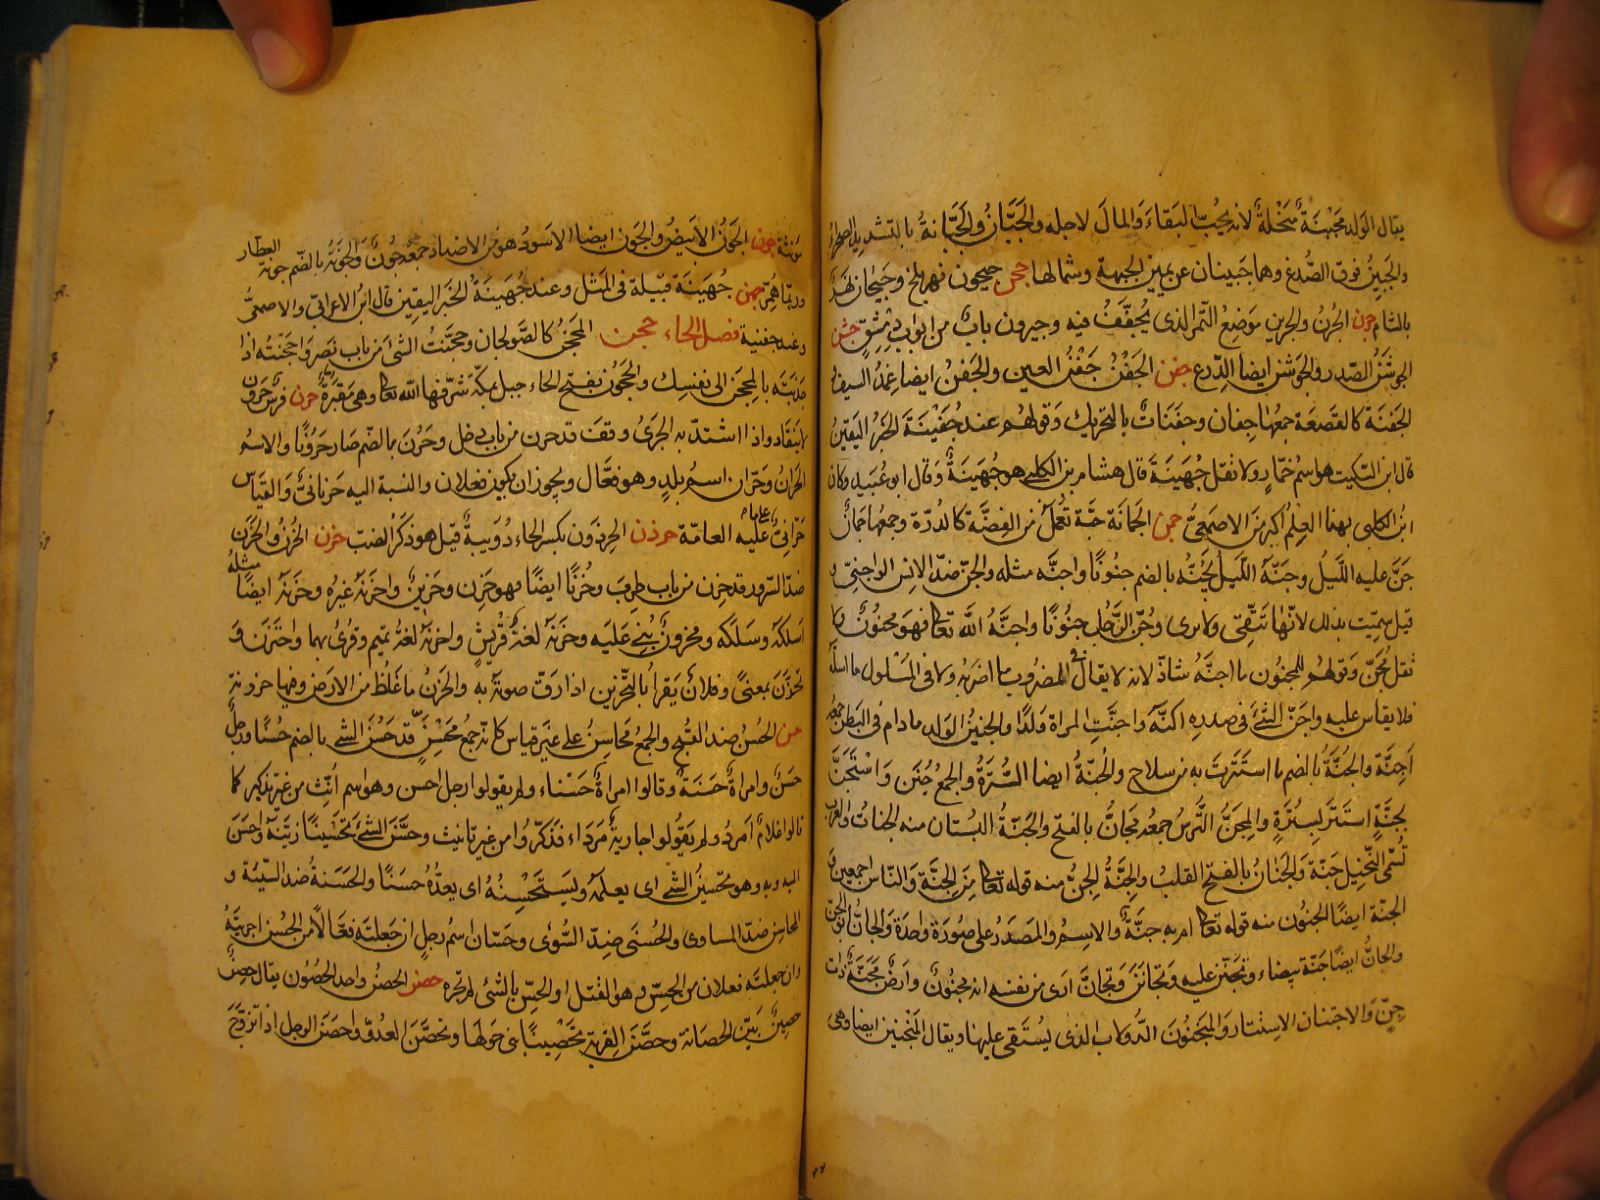 يقال الولد مَجْبَنَةٌ مَبْخَلَةٌ لانه يُحِبُّ البَقاءَ وَالمالَ لاجله والجَبَّانُ والجَبَّانَةُ بالتشديد الصحراء
والجَبِينُ فوق الصُّدغ وهما جَبينان عن يمين الجبهة وشمالها جحن جيحون نهر بلخ وجَيحان نهر
بالشام جرن الجُرْنُ والجَرين موضِعُ التَّمر الذى يُجفَّفُ فيه وجيرون بابٌ من ابواب دِمَشْق جشن
الجَوشَنُ الصّدر والجَوْشَنُ ايضا الدِّرع جفن الجَفْنُ جَفْنُ العين والجَفنُ ايضا غِمْدُ السيف و
الجَفنَة كالقَصعَة جمعُها جِفان وجَفَنَاتٌ بالتحريك وَقولهم عند جُفَيْنَةَ الخَبَرُ اليَقينُ
قال ابن السّكيت هو اسمُ خمّارٍ ولا تقل جُهَينَةَ قال هشام بن الكلبى هو جُهَيْنَةُ وَقال ابو عُبَيد وكان
ابنُ الكلبى بهذا العِلم اكبر مِنَ الاصمَعِىّ جمن الجُمانَة حبَّة تُعمَلُ من الفِضَّة كالدُرّة وجمعها جُمانٌ
جَنَّ عليه اللَّيلُ وجَنَّهُ اللَّيلُ يَجُنُّه بالضم جنُونًا واجنَّه مثله والجِنّ ضدّ الانس الواحِد جِنّى و
قيل سمّيت بذلك لانّها تتَّقى ولا تُرى وجُنَّ الرَّجُل جنُونًا واجنَّهُ اللّه تعالى فهوَ مجنُونٌ ولا
تقل مُجَنّ وقولهُم للمجنُون ما اجنَّهُ شاذّ لانه لا يقال فى المضروب ما اضربَهُ ولا فى المَسْلول ما اسَلَّهُ
فلا يقاس عليه واجنّ الشئَ فى صدره اكنَّهُ واجنَّتِ المراة وَلدًا والجنينُ الوَلد ما دام فى البَطن جمعه
اَجِنَّة والجُنَّةُ بالضم ما استَتَرتَ به من سلاح والجُنَّةُ ايضا السُّتْرَةُ والجمعُ جُنَن وَاسْتَجَنَّ
بجُنّةٍ استَتَر بِسُترَةٍ والمِجَنُّ التُّرسُ جمعه مَجانُّ بالفتح والجَنَّة البُستان منه الجنات والعَرب
تُسمّى النَّخيل جَنَّة والجَنانُ بالفتح القلبُ والجِنَّةُ الجِنُّ منه قوله تعالى مِنَ الجِنَّةِ والنّاسِ اجمعين و
الجِنّة ايضًا الجنُون منه قوله تعالى ام به جنَّةٌ والاسمُ والمَصدَرُ على صُورَة واحدَة والجانُّ ابو الجنّ
والجانُّ ايضًا حيّة بيضاء وتَجنَّنَ عليه وتَجانَنَ وتَجانَّ ارى من نفسه انه مجنُونٌ وارضٌ مَجَنّةٌ ذات
جِنّ والاجتنان الاستتار والمَنجنُون الدُّولاب الذى يُستَقى عليها ويقال المَنْجَنِينُ ايضا وهى
مؤنثة جون الجَونُ الابيضُ والجَون ايضا الاسودُ هو من الاضداد جمعه جُونٌ والجُونَةُ بالضم جونة العطّار
وربّما هُمِزَ جهن جُهَيْنَة قَبيلة فى المَثل وعند جُهَينَةَ الخَبَر اليقِين قال ابنُ الاعرابىّ والاصمعىُّ
وعند جفينة فصل الحاء حجن المِحجَنُ كالصَّولجان وحَجَنْتُ الشئَ من باب نصر واحجَنتُه اذا
جذبتَه بالمحجَن الى نفسِك والحَجُونُ بفتح الحاء جبل بمكّة شرّفها اللّه تعالى وهى مَقبَرَةٌ حرن فَرسٌ حَرون
لا يَنقاد واذا اشتدّ به الجَرىُ وقفَ قد حرن من باب دخل وحَرُنَ بالضم صار حَرُونًا والاسمُ
الحِرانُ وحَرّان اسمُ بلدٍ وهو فعّال ويجوز ان يكون فعلان والنسبة اليه حَرنانىٌّ والقياس
حَرّانىٌّ على ما عليه العامّة حرذن الحِرذَون بكسر الحاء دُويبةٌ قيل هو ذكَرُ الضبّ حزن الحُزنُ والحَزَن
ضدّ السّرور قد حزن من باب طرِبَ وحُزنًا ايضًا فهو حَزِن وحَزينٌ واحزنَهُ غيرُهُ وحزنَهُ ايضًا مثلُهُ
اَسلكَهُ وسَلَكَه ومحزونٌ بُنِىَ عَليه وحزنَهُ لغةُ قُرَيْشٍ واحزنَهُ لغةُ تميم وقُرِئَ بهما واحتزَنَ وَ
تحزَّنَ بمعنىً وفلانٌ يَقرأ بالتّحزين اذا رقّ صوتَهُ به والحَزنُ ما غَلُظَ من الارض وفيها حزونة
حسن الحُسنُ ضد القبحِ والجمعُ مَحاسِنُ على غَير قياس كانّه جمعُ مَحْسَنٍ قد حَسُنَ الشئ بالضم حُسنًا ورجلٌ
حَسَنٌ وامراةٌ حَسَنَةٌ وقالوا امراةٌ حَسْناء ولم يقولوا رجل احسن وهو اسم اُنِّثَ من غير تذكير كما
قالوا غلامٌ اَمردُ ولم يَقُولوا جاريةٌ مَرداء فذكّروا من غير تانيث وحسَّنَ الشئَ تحْسينًا زيّنهُ واحسَنَ
اليه وبه وهو يحْسِنُ الشئ اى يعلمُهُ ويَستَحْسِنُهُ اى يعدُّهُ حسَنًا والحَسَنةُ ضدّ السّيّئة و
المحاسِنُ ضدّ المساوى والحُسنَى ضِدّ السُّوأى وحَسّان اسمُ رجلٍ ان جعلتَه فعّالا من الحُسن اجريتَهُ
وان جعلتَه فعلان من الحِسّ وهو القتل او الحِسّ بالشئ لم تُجره حصن الحصنُ واحد الحُصُون يقال حِصنٌ
حصِينٌ بَيّنُ الحصانة وحصَّنَ القَريَة تحْصينًا بَنى حولها وتحصَّنَ العدوّ واحصَنَ الرجل اذا تزوّج